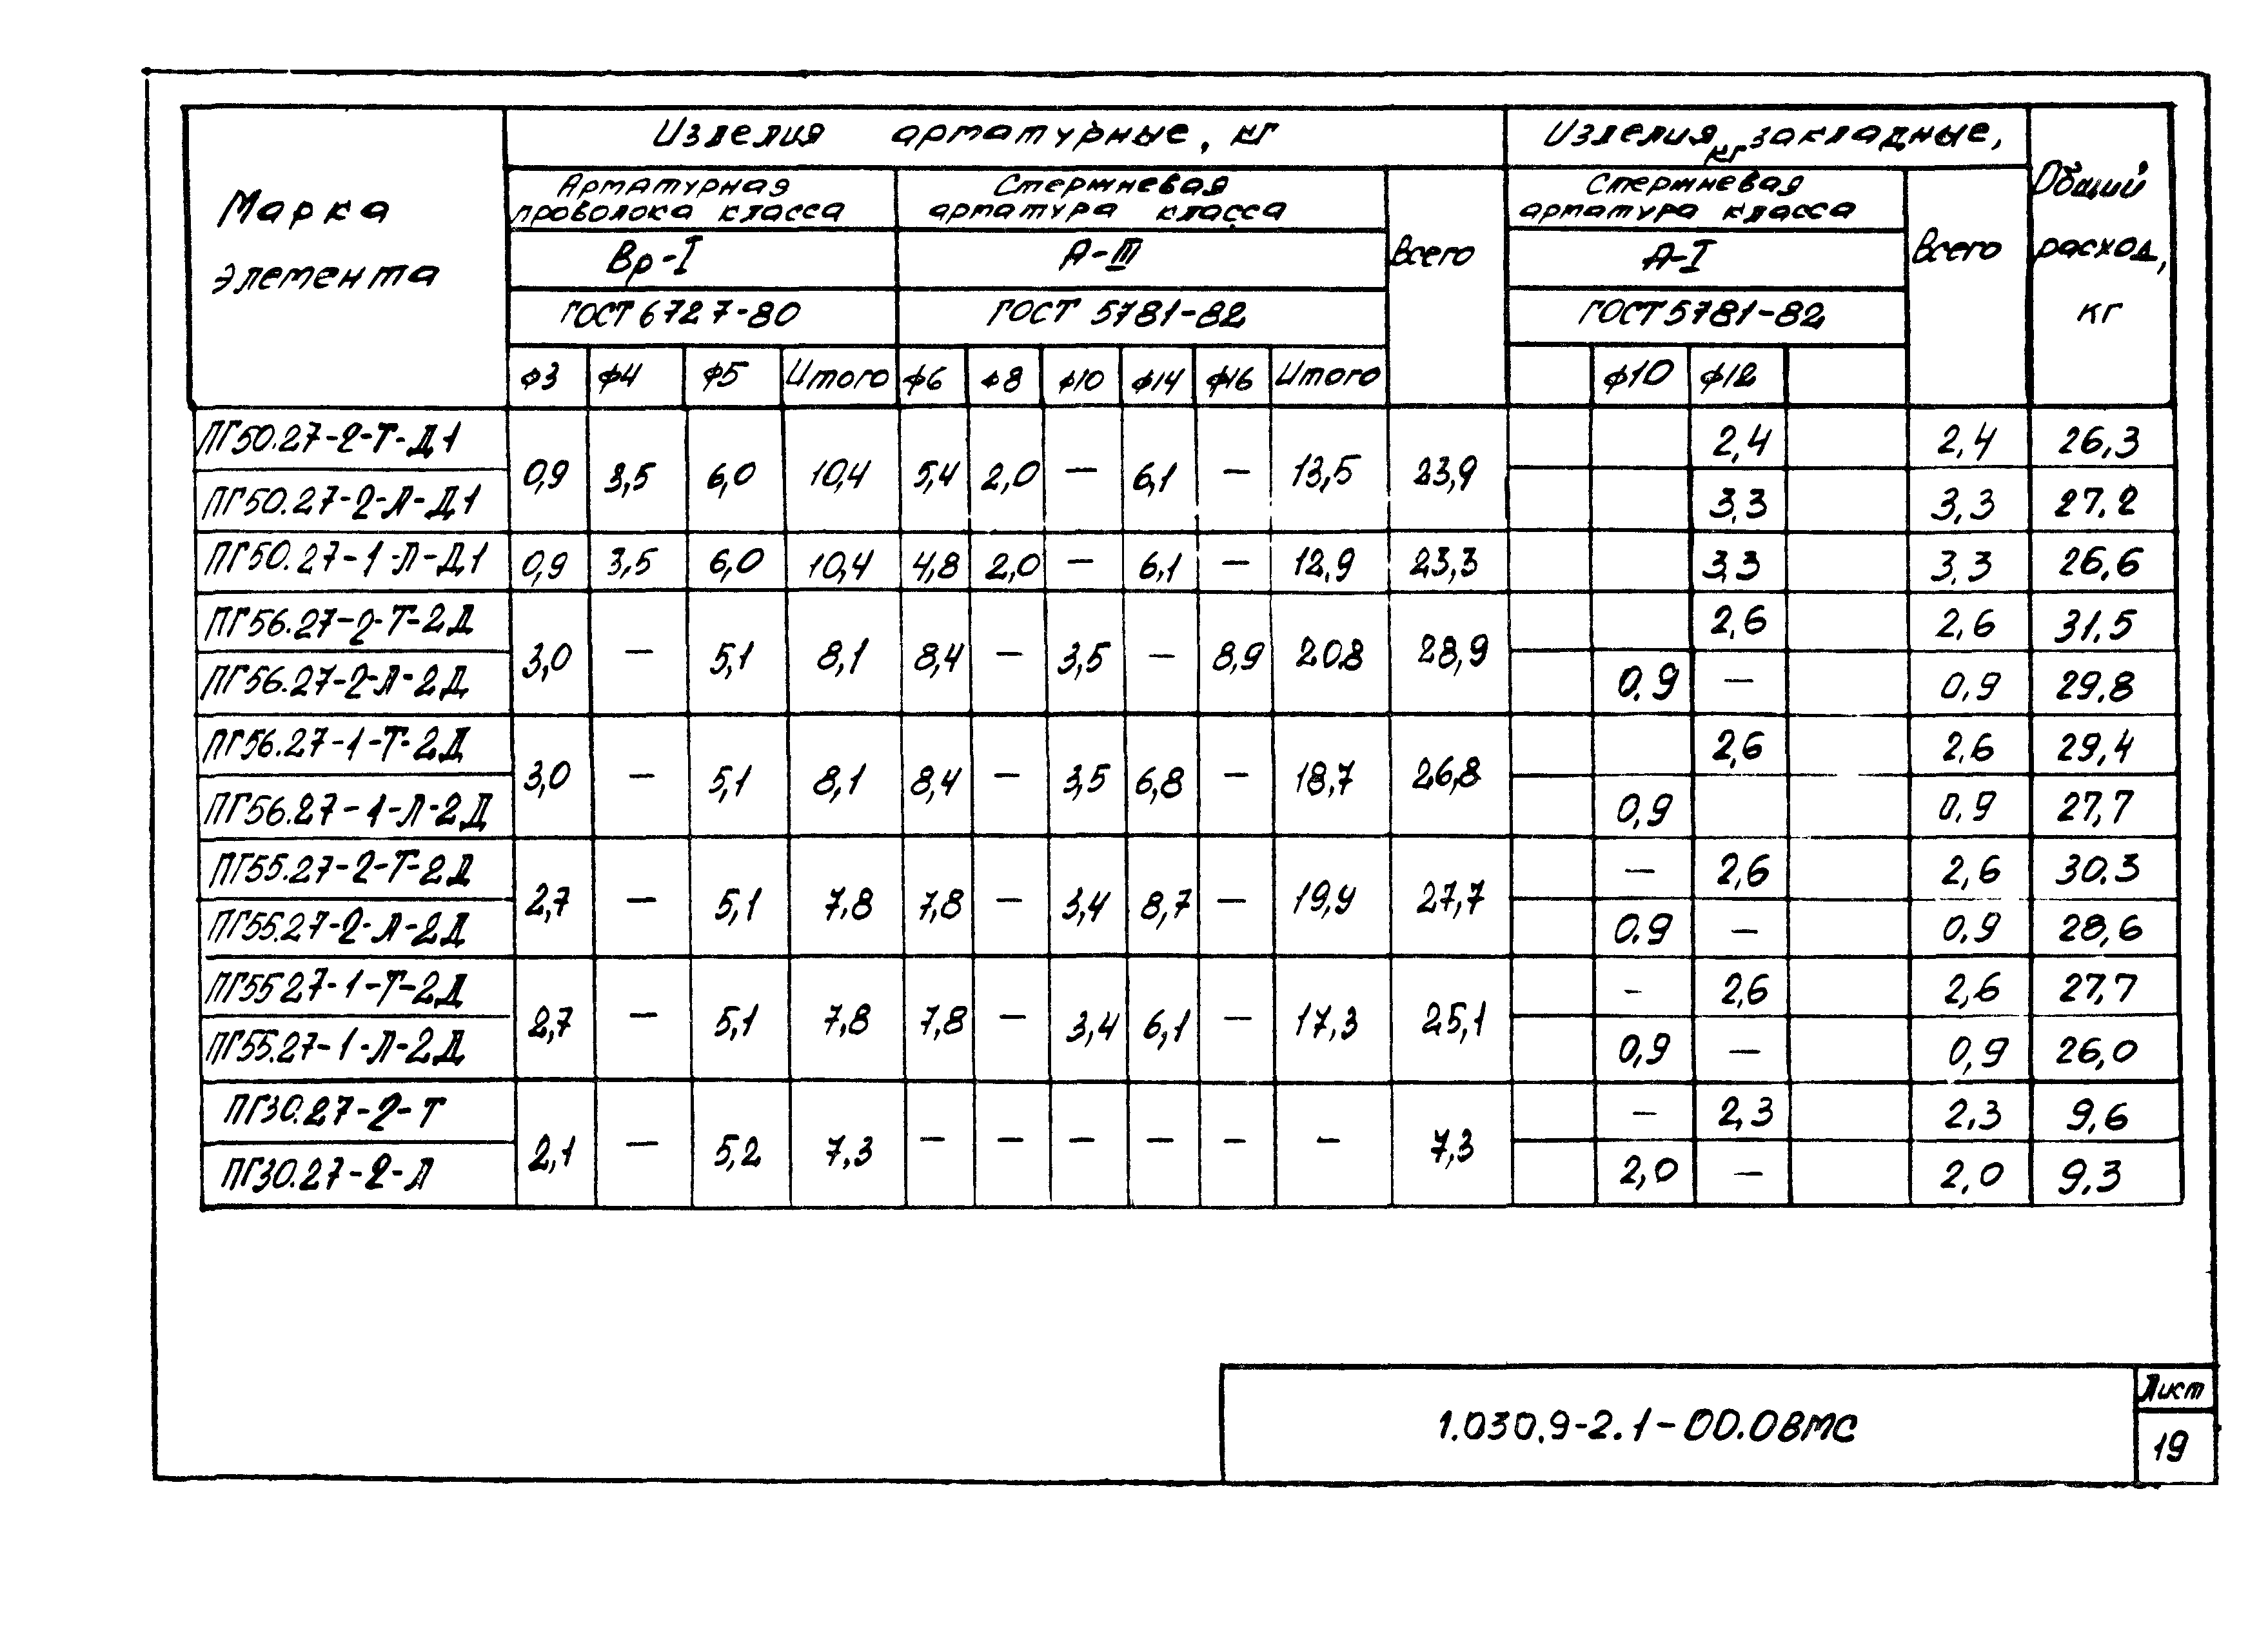 Марка элемента
Изделия арматурные, кг
Изделия закладные, кг
Общий расход, кг
Арматурная проволока класса
Стержневая арматура класса
Всего
Стержневая арматура класса
Всего
Вр-I
А-III
А-I
ГОСТ 6727-80
ГОСТ 5781-82
ГОСТ 5781-82
ф3 ф4 ф5 Итого ф6 ф8 ф10 ф14 ф16 Итого ф10 ф12
ПГ50.27-2-Т-Д1 2,4 2,4 26,3
0,9 3,5 6,0 10,4 5,4 2,0 — 6,1 — 13,5 23,9
ПГ50.27-2-Л-Д1 3,3 3,3 27,2
ПГ50.27-1-Л-Д1 0,9 3,5 6,0 10,4 4,8 2,0 — 6,1 — 12,9 23,3 3,3 3,3 26,6
ПГ56.27-2-Т-2Д 2,6 2,6 31,5
3,0 — 5,1 8,1 8,4 — 3,5 — 8,9 20,8 28,9
ПГ56.27-2-Л-2Д 0,9 — 0,9 29,8
ПГ56.27-1-Т-2Д 2,6 2,6 29,4
3,0 — 5,1 8,1 8,4 — 3,5 6,8 — 18,7 26,8
ПГ56.27-1-Л-2Д 0,9 0,9 27,7
ПГ55.27-2-Т-2Д — 2,6 2,6 30.3
2,7 — 5,1 7,8 7,8 — 3,4 8,7 — 19,9 27,7
ПГ55.27-2-Л-2Д 0,9 — 0,9 28,6
ПГ55 27-1-Т-2Д - 2,6 2,6 27,7
2,7 — 5,1 7,8 7,8 — 3,4 6,1 — 17,3 25,1
ПГ55.27-1-Л-2Д 0,9 — 0,9 26,0
ПГ30.27-2-Т — 2,3 2,3 9,6
2,1 — 5,2 7,3 — — — — — — 7,3
ПГ30.27-2-Л 2,0 — 2,0 9,3
1.030.9-2.1-00.0ВМС
Лист
19